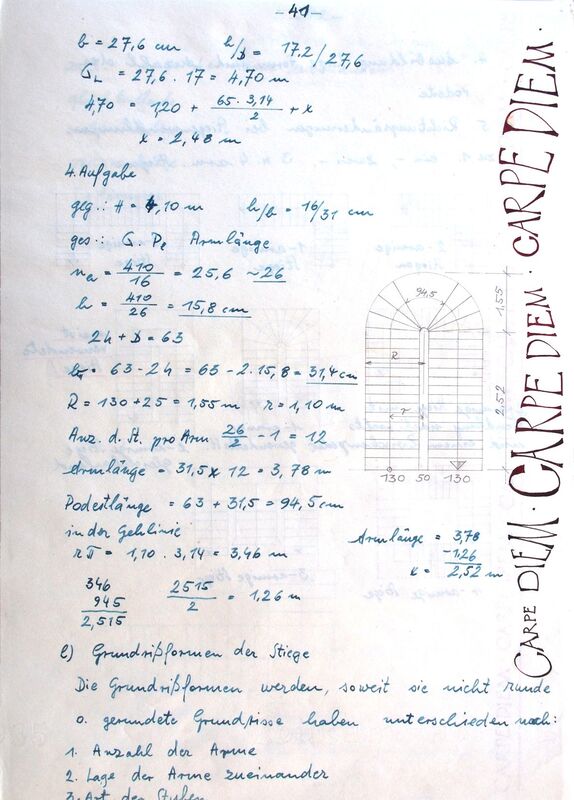 - 41 -
b = 27,6 cm h/D = 17,2/27,6
G_L = 27,6 . 17 = 4,70 m
4,70 = 1,20 + 65 . 3,14 / 2 + x
x = 2,48 m
4. Aufgabe
geg.: H = 4,10 m h/b = 16/31 cm
ges.: G. Pe Armlänge
n a = 410/16 = 25,6 ~26
h = 410/26 = 15,8 cm
2h + D = 63
b = 63 - 2h = 63 - 2.15,8 = 31,4 cm
R = 130 + 25 = 1,55 m r = 1,10 m
Anz. d. St. pro Arm 26/2 - 1 = 12
Armlänge = 31,5 x 12 = 3,78 m
Podestlänge = 63 + 31,5 = 94,5 cm
in der Gehlinie
rπ = 1,10 . 3,14 = 3,46 m
346
945
2,515
2515/2 = 1,26 m
94,5
1,55
2,52
R
r
130 50 130
Armlänge = 3,78
-1,26
x = 2,52 m
e) Grundrißformen der Stiege
Die Grundrißformen werden, soweit sie nicht runde
o. gerundete Grundrisse haben unterschieden nach:
1. Anzahl der Arme
2. Lage der Arme zueinander
3. Art der Stufen
CARPE DIEM · CARPE DIEM · CARPE DIEM ·